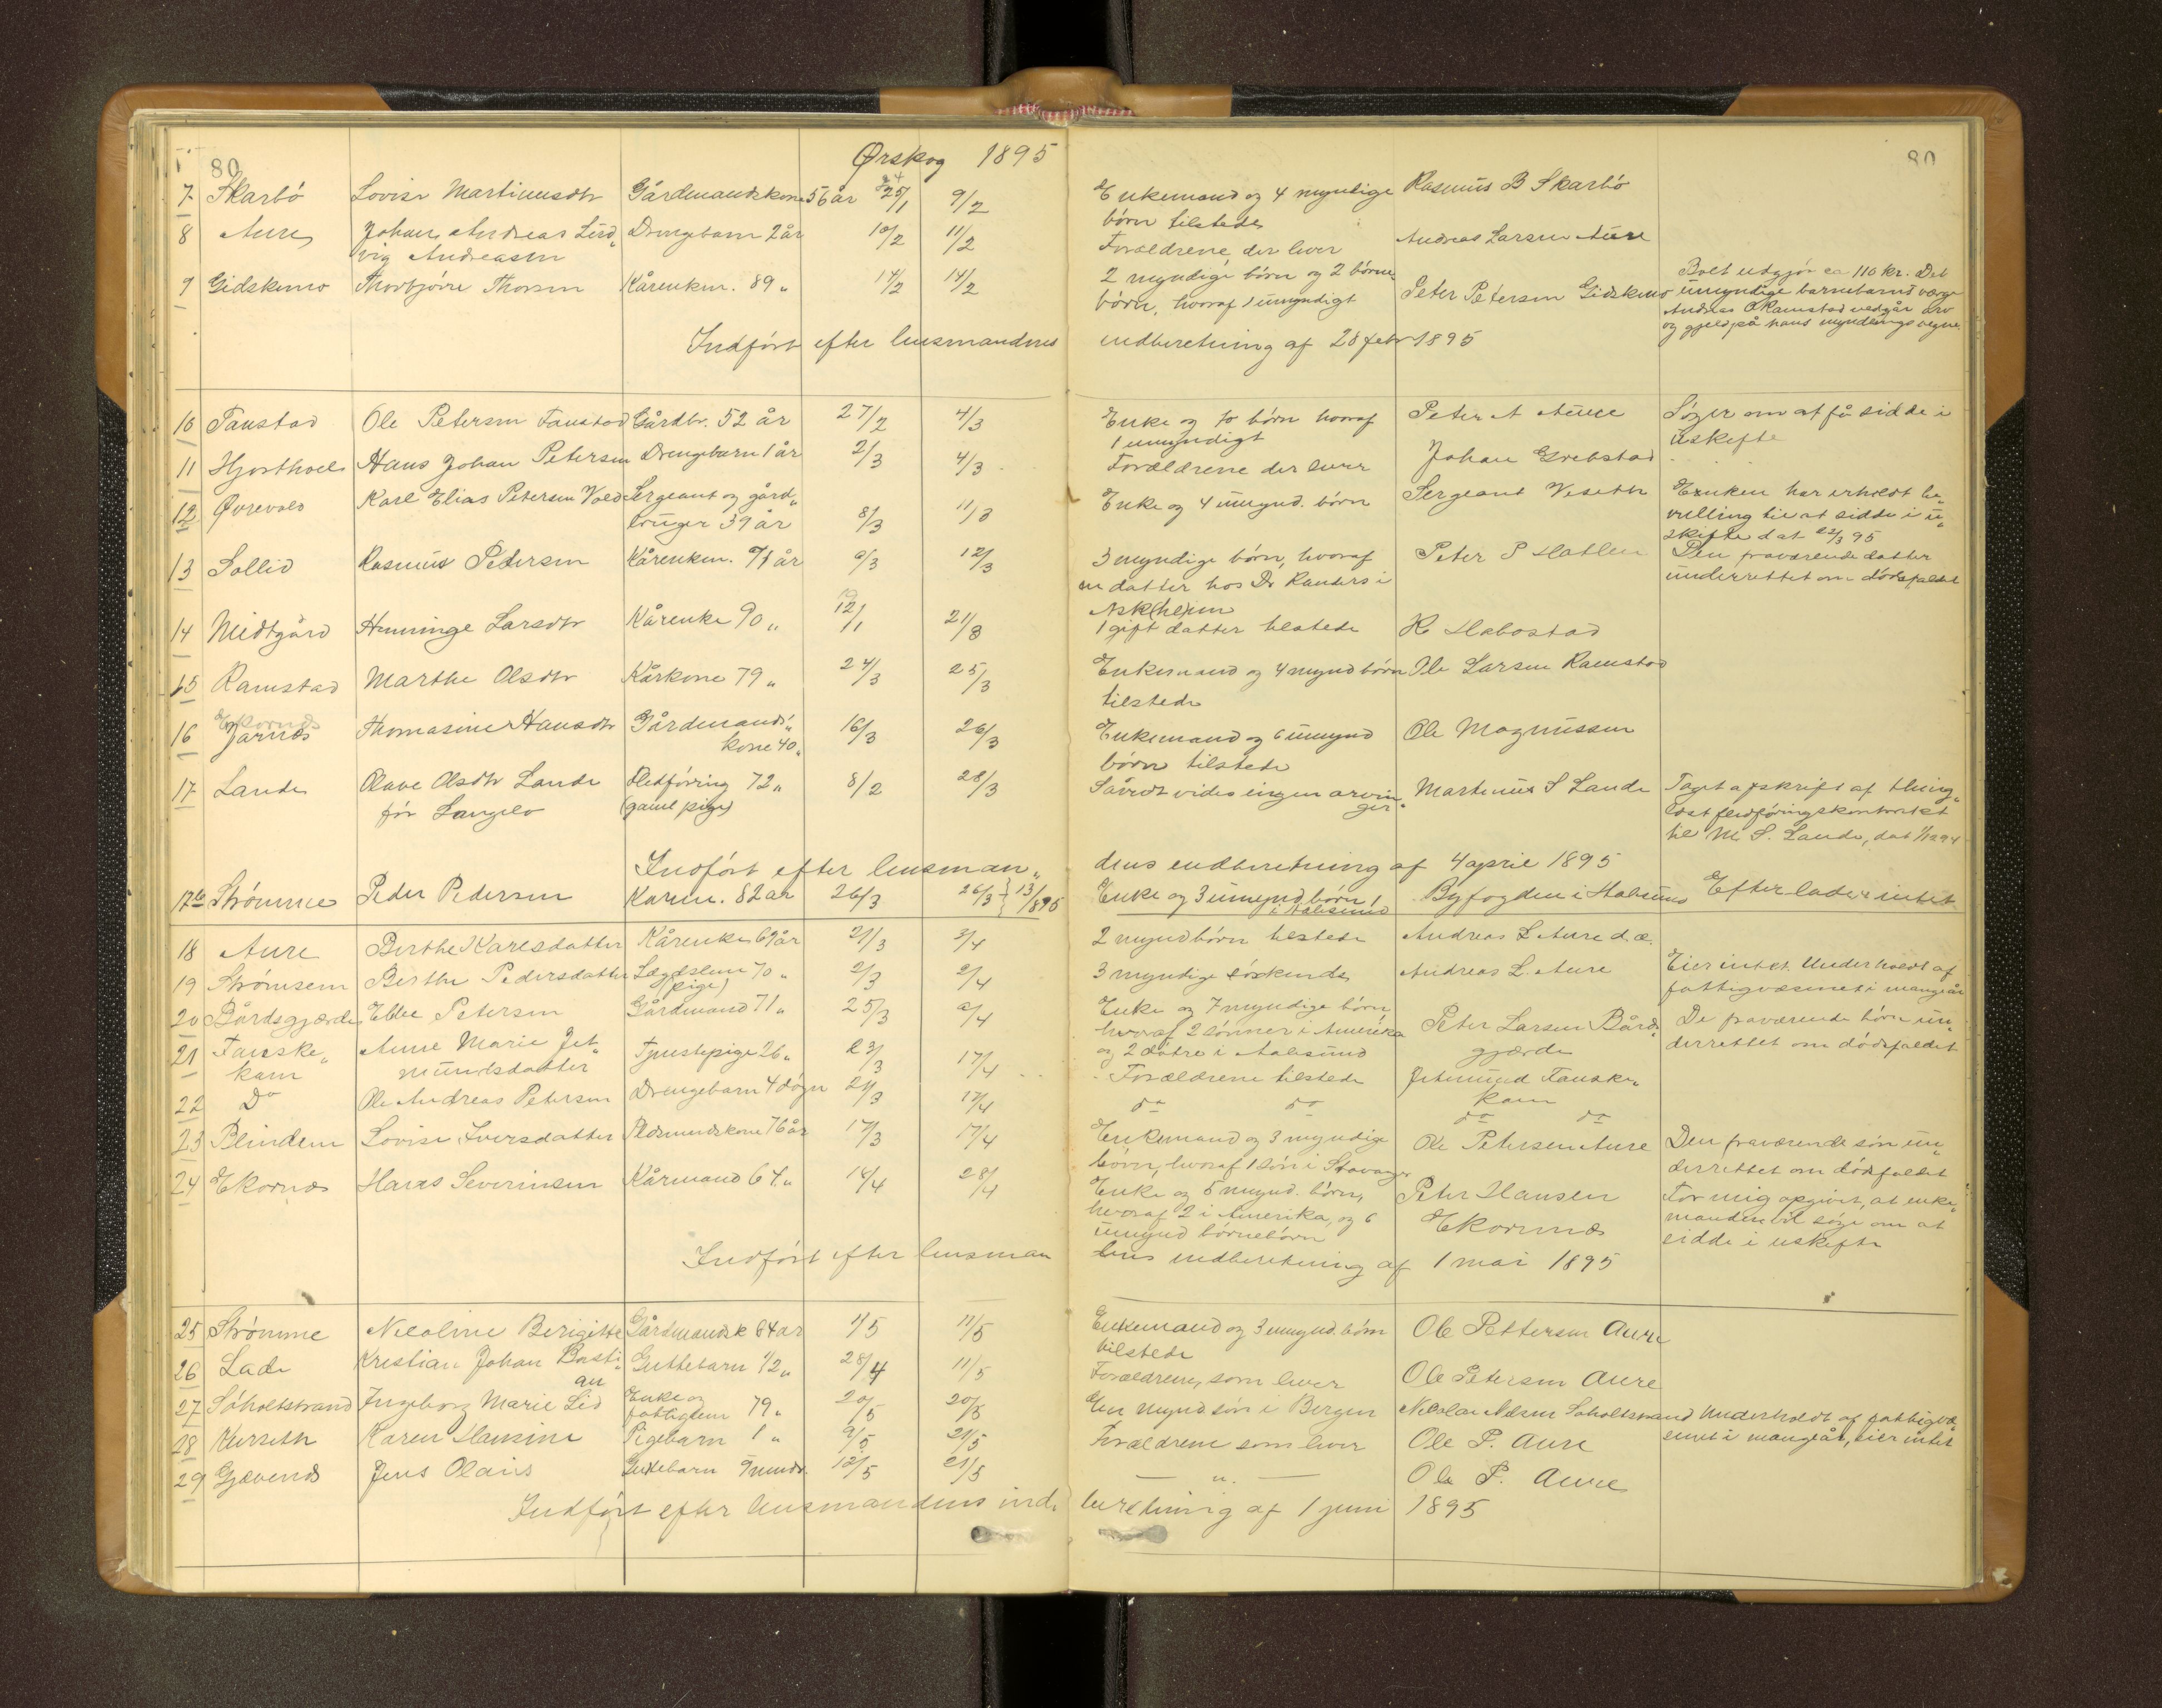 80
Ørskog 1895
80
7 Skarbö Lovise Martinusdtr Gårdmandskone 56 år 25/1 9/2 Enkemand og 4 myndige Rasmus B Skarbö
børn tilstede
8 Aure Johan Andreas Lud„ Drengebarn 2 år 10/2 11/2 Forældrene der lever Andreas Larsen Aure
vig Andreasen
9 Gidskemo Thorbjörn Thorsen Kårenkem. 89„ 14/2 14/2 2 myndige börn og 2 börne„ Peter Petersen Gidskemo Boet udgjör ca 110 kr. Det
börn, hvoraf 1 umyndigt umyndige barnebarns værge
Andreas O Ramstad vedgår arv
og gjeld på hans myndlings vegne
Indfört efter lensmandens indberetning af 28 febr 1895
10 Tanstad Ole Petersen Tanstad Gårdbr. 52 år 27/2 4/3 Enke og 10 børn hvoraf Peter A Aure Søger om at få sidde i
1 umyndigt uskifte
11 Hjorthoel Hans Johan Petersen Drengebarn 1 år 2/3 4/3 Forældrene der lever Johan Grebstad
12 Øvrevold Karl Elias Petersen Vold Sergeant og gård„ Enke og 4 umynd. børn Sergeant Veseth Enken har erholdt be„
bruger 39 år 8/3 11/3 villing til at sidde i u„
skifte dat 22/3 95
13 Sollid Rasmus Pedersen Kårenkem. 71 år 9/3 12/3 3 myndige børn, hvoraf Peter P Hatlen Den fraværende datter
en datter hos Dr Randers i underrettet om dödsfaldet
Ask(he)im
14 Midtgård Henninge Larsdtr Kårenke 90„ 12/1 21/3 1 gift datter tilstede K Habostad
15 Ramstad Marthe Olsdtr Kårkone 79„ 24/3 25/3 Enkemand og 4 mynd børn Ole Larsen Ramstad
tilstede
Ekornæs
16 Jarnæs Thomasine Hansdtr Gårdmands„ 16/3 26/3 Enkemand og 6 umynd Ole Magnussen
kone 40„ børn tilstede
17 Lande Olave Olsdtr Lande Fledföring 72„ 8/2 28/3 Såvidt vides ingen arvin„ Martinus S Lande Taget afskrift af thing„
för Langelo (gaml pige) ger læst fledföringskontrakt
til M. S. Lande, dat
Indfört efter lensman„ dens indberetning af 4 april 1895
17b Strømme Peder Pedersen Karem. 82 år 26/3 26/3 13/1895 Enke og 3 umynd. børn, 1 Byfogden i Aalesund Efterlader intet
i Aalesund
18 Aure Berthe Karlsdatter Kårenke 69 år 21/3 3/4 2 mynd børn tilstede Andreas L Aure d.æ.
19 Strømsem Berthe Pedersdatter Lægdslem 70„ 2/3 2/4 3 myndige söskende Andreas L. Aure Eier intet. Underholdt af
(pige) fattigvæsenet i mange år
20 Bårdsgjærde Ebbe Petersen Gårdmand 71„ 25/3 9/4 Enke og 7 myndige börn, Peter Larsen Bårds„ De fraværende børn un„
hvoraf 2 sönner i Amerika gjærde derrettet om dödsfaldet
og 2 dötre i Aalesund
21 Tanske„ Anne Marie Jet„ Tjenestepige 26„ 23/3 17/4 Forældrene tilstede Jetmund Tanske„
kam mundsdatter kam
22 Do Ole Andreas Petersen Drengebarn 4 dögn 24/3 17/4 do do do do
23 Blindem Lovise Iversdatter Pladsmandskone 76 år 17/3 17/4 Enkemand og 3 myndige Ole Petersen Aure Den fraværende sön un„
börn, hvoraf 1 sön i Stavanger derrettet om dödsfaldet
24 Ekornæs Hans Severinsen Kårmand 64„ 14/4 28/4 Enke og 5 mynd. børn, Peter Hansen For mig opgivet, at enke„
hvoraf 2 i Amerika, og 6 Ekornæs manden vil söge om at
umynd börnebörn sidde i uskifte
Indfört efter lensman dens indberetning af 1 mai 1895
25 Strømme Nicoline Berigitte Gårdmandsk 64 år 1/5 11/5 Enkemand og 3 umynd. børn Ole Pettersen Aure
tilstede
26 Lade Kristian Johan Basti„ Guttebarn 1/2„ 28/4 11/5 Forældrene, som lever Ole Petersen Aure
an
27 Söholtstrand Ingeborg Marie Lid Enke og 20/5 20/5 En mynd sön i Bergen Nicolai Nilsen Söholtstrand Underholdt af fattigvæ
fattiglem 79„ senet i mange år, eier intet
28 Kurseth Karen Hansine Pigebarn 1„ 9/5 21/5 Forældrene som lever Ole P. Aure
29 Gjævenes Jens Olaus Guttebarn 9 mnds. 12/5 21/5 — „ — Ole P. Aure
Indfört efter lensmandens ind„ beretning af 1 juni 1895